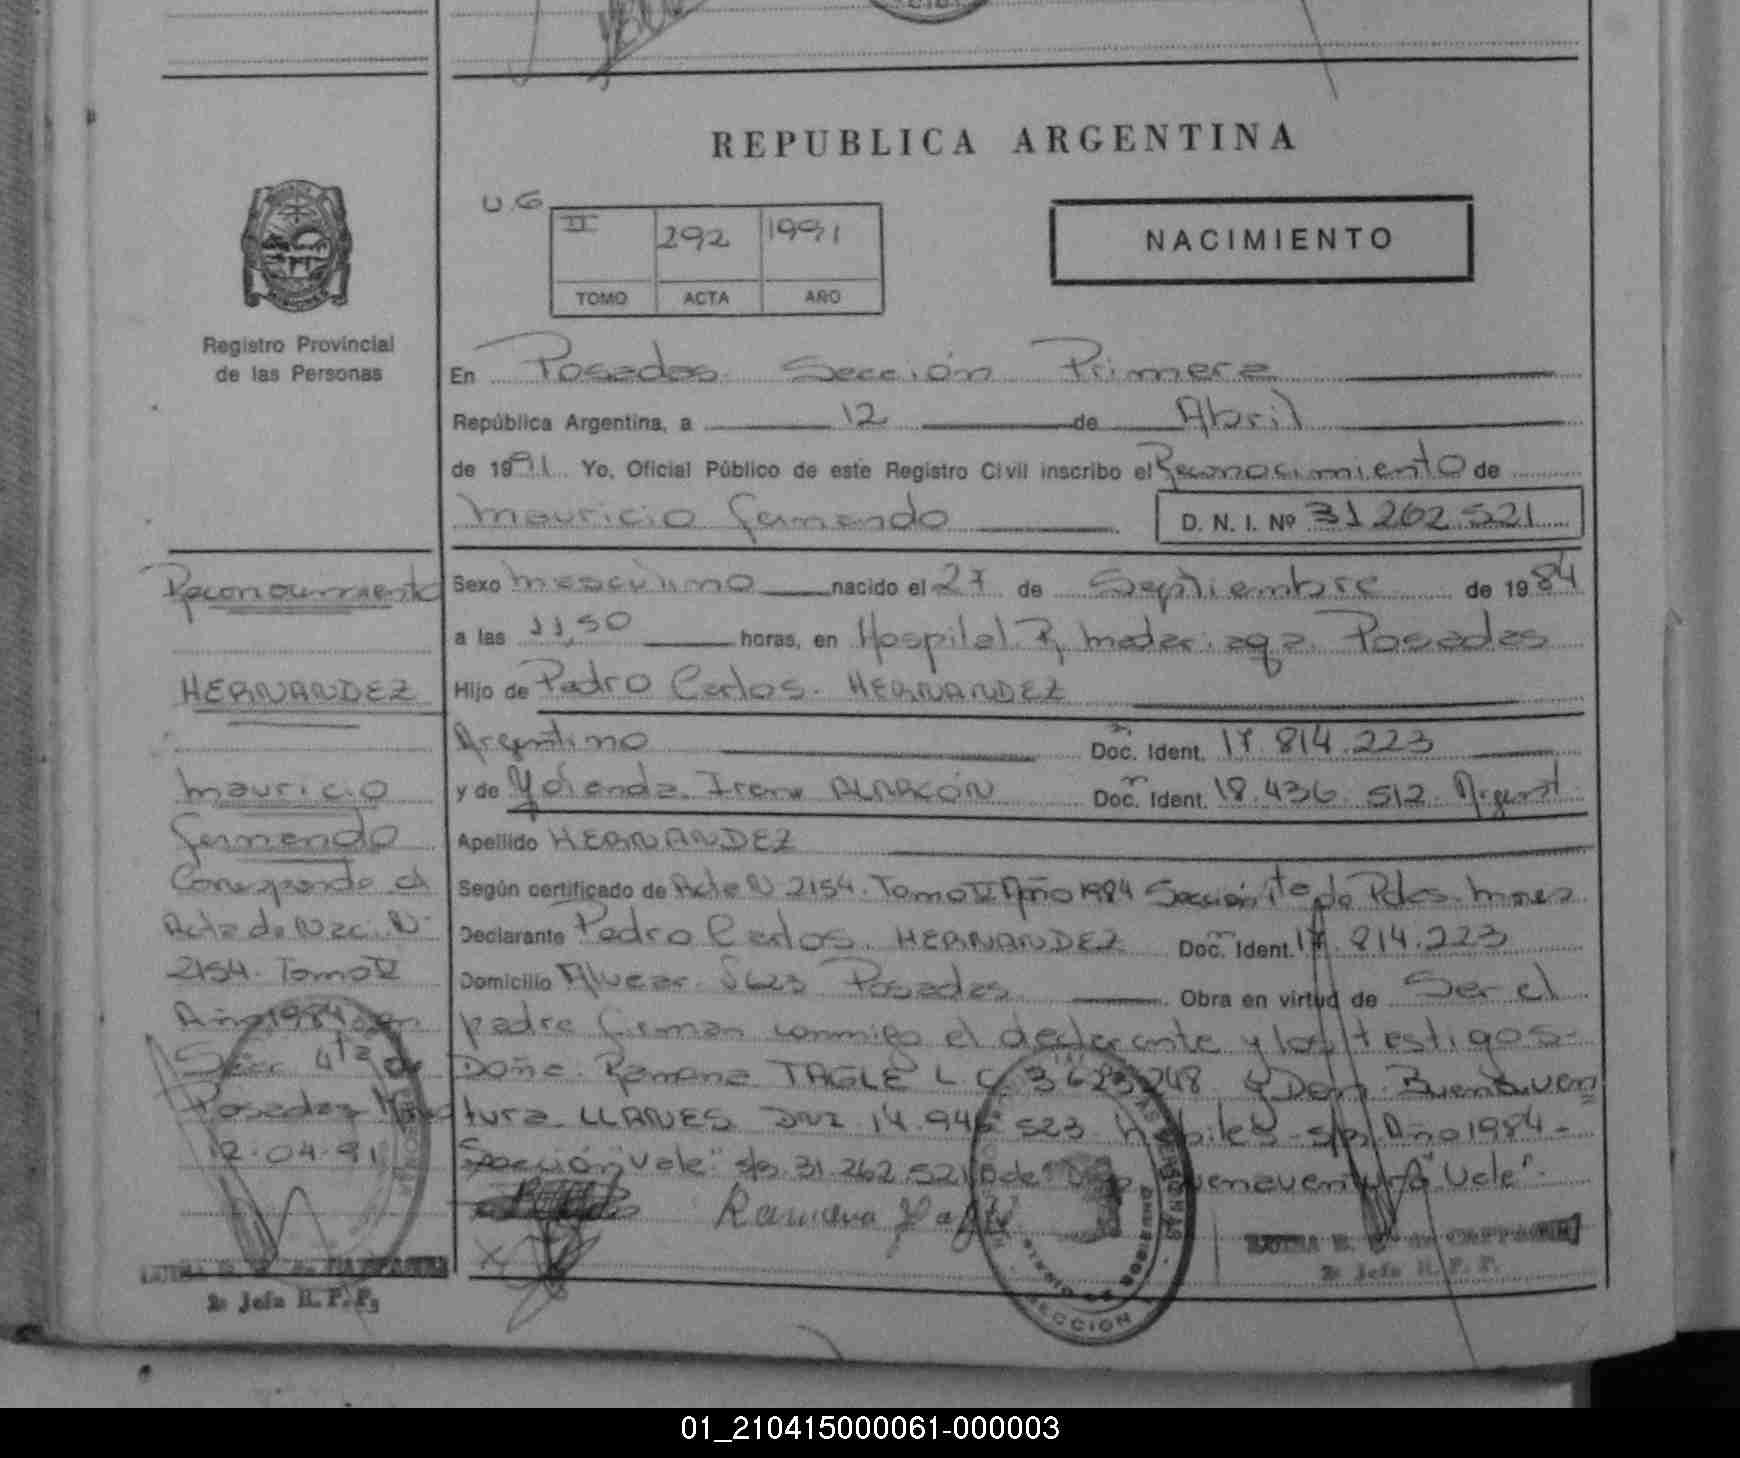 REPUBLICA ARGENTINA
U.G.
II 292 1991
TOMO ACTA AÑO
NACIMIENTO
Registro Provincial
de las Personas
En Posadas Sección Primera
República Argentina, a 12 de Abril
de 1991 Yo, Oficial Público de este Registro Civil inscribo el Reconocimiento de
Mauricio Fernando D. N. I. Nº 31 262 521
Reconocimiento
HERNANDEZ
Mauricio
Fernando
Corresponde al
Acta de Nac. N
2154. Tomo
Año 1984
Secc 4ta de
Posadas
12.04.91
2º Jefe R.P.P.
Sexo masculino nacido el 27 de Septiembre de 1984
a las 11,50 horas, en Hospital R. Madariaga. Posadas
Hijo de Pedro Carlos. HERNANDEZ
Argentino Doc. Ident. 17.814.223
y de Yolanda Irene ALARCÓN Doc. Ident. 18.436.512. Argent.
Apellido HERNANDEZ
Según certificado de Acta N 2154. Tomo Año 1984 Sección de Pdas.
Declarante Pedro Carlos. HERNANDEZ Doc. Ident. 17.814.223
Domicilio Alvear Posadas Obra en virtud de Ser el
padre firman conmigo el declarante y los testigos
Doña Ramona TAGLE L.C. 3 623 248 y Don Buenaven
tura LLANES DNI 14.946 523 Hábiles s/p. Año 1984-
Sección "Vale" s/p. 31.262.521 Buenaventura "Vale".
Ramona
SECCION
2º Jefe R.P.P.
01_210415000061-000003